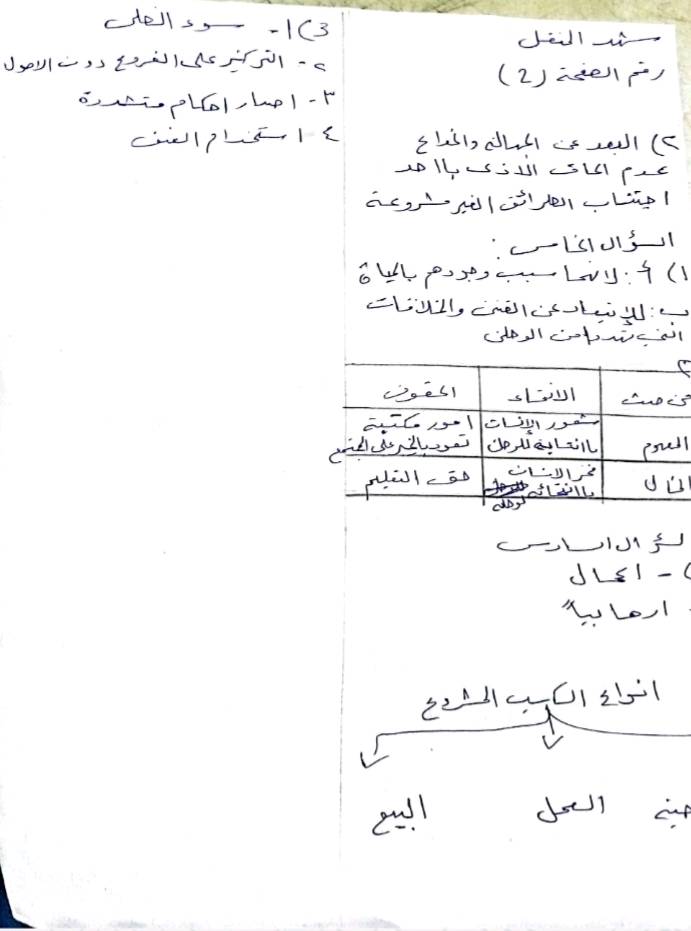 رقم الصفحة (2)
2) البعد عن المماله والخداع
عدم الحاق الاذى بااحد
اجتناب الطرائق الغير مشروعة
السؤال الخامس :
1) أ: لانها سبب وجودهم بالحياة
ب: للابتعاد عن الفتن والخلافات
التي تهدد امن الوطن
من حيث | الانتماء | الحقوق
المفهوم | شعور الانسان باانتمائه للوطن | امور مكتسبة تعود بالخير على المجتمع
المثال | فخر الانسان باانتمائه لوطنه | حق التعليم
السؤال السادس
- اكمال
ارهابياً
انواع الكسب المشروع
العمل البيع
3) 1- سوء الظن
2- التركيز على الفروع دون الاصول
3- اصدار احكام متشددة
4 استخدام العنف